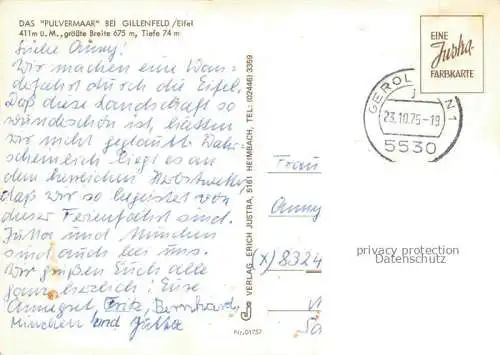 DAS "PULVERMAAR" BEI GILLENFELD/Eifel
411m ü. M., größte Breite 675 m, Tiefe 74 m
Liebe Änny!
Wir machen eine Wan-
derfahrt durch die Eifel.
Daß diese Landschaft so
wunderschön ist, hätten
wir nicht geglaubt. Wahr-
scheinlich liegt es an
dem herrlichen Herbstwetter,
daß wir so begeistert von
dieser Ferienfahrt sind.
Jutta und München
sind auch bei uns.
Wir grüßen Euch alle
ganz herzlich! Eure
Annegret Fritz, Bernhard,
München und Jutta
VERLAG ERICH JUSTRA, 5161 HEIMBACH, TEL: (02446) 3359
Nr. 01757
EINE
Justra-
FARBKARTE
GEROL N 1
23.10.75-19
5530
Frau
Änny
(X) 8324
privacy protection
Datenschutz